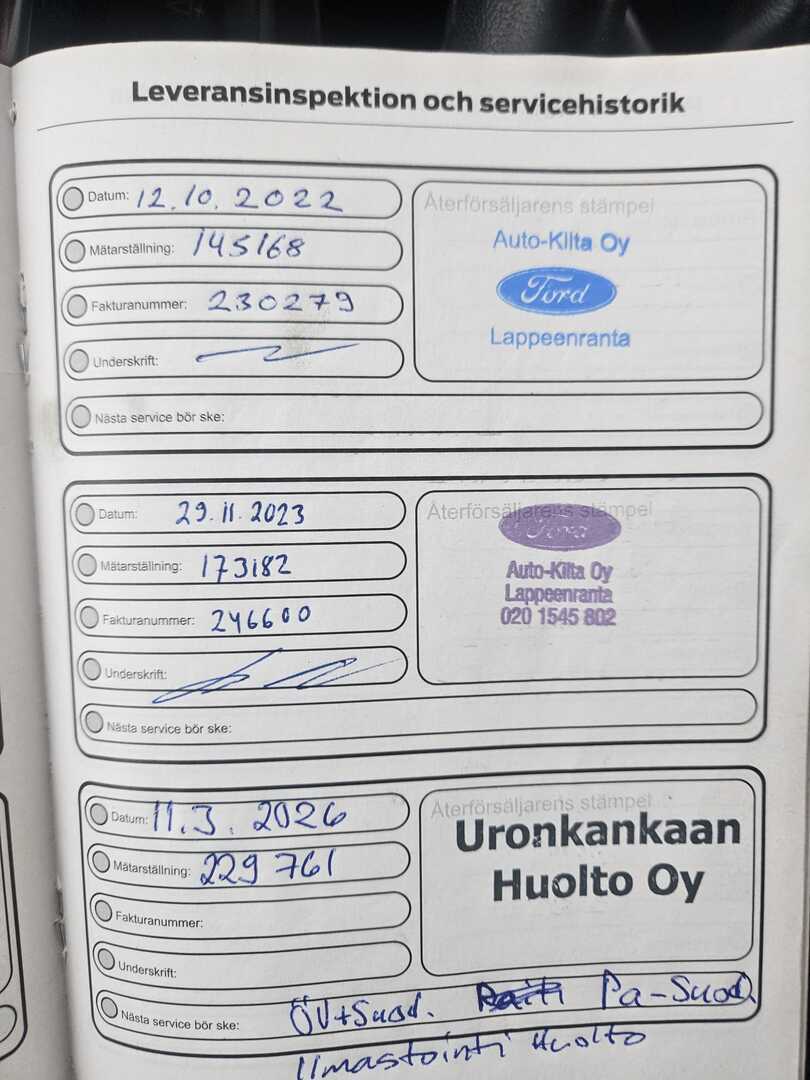 Leveransinspektion och servicehistorik
Datum: 12.10.2022
Mätarställning: 145168
Fakturanummer: 230279
Underskrift:
Nästa service bör ske:
Återförsäljarens stämpel
Auto-Kilta Oy
Ford
Lappeenranta
Datum: 29.11.2023
Mätarställning: 173182
Fakturanummer: 246600
Underskrift:
Nästa service bör ske:
Återförsäljarens stämpel
Ford
Auto-Kilta Oy
Lappeenranta
020 1545 802
Datum: 11.3.2026
Mätarställning: 229 761
Fakturanummer:
Underskrift:
Återförsäljarens stämpel
Uronkankaan
Huolto Oy
Nästa service bör ske: ÖV+Suod. Pa-Suod.
Ilmastointi Huolto